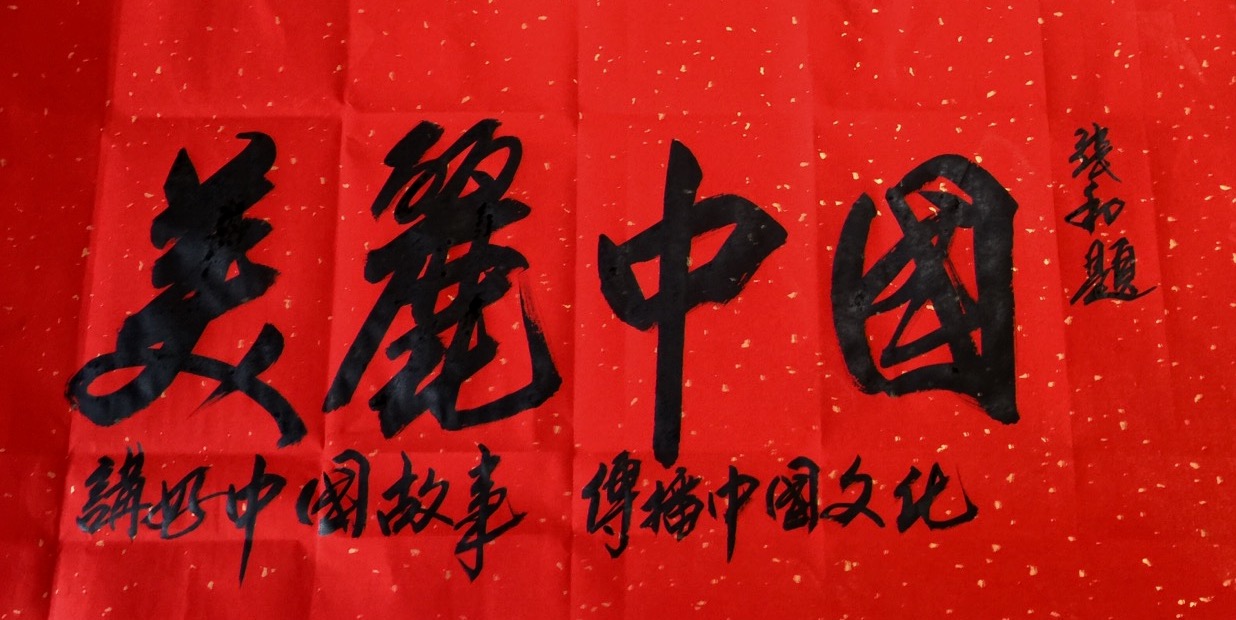 美麗中國
講好中國故事 傳播中國文化
張和題